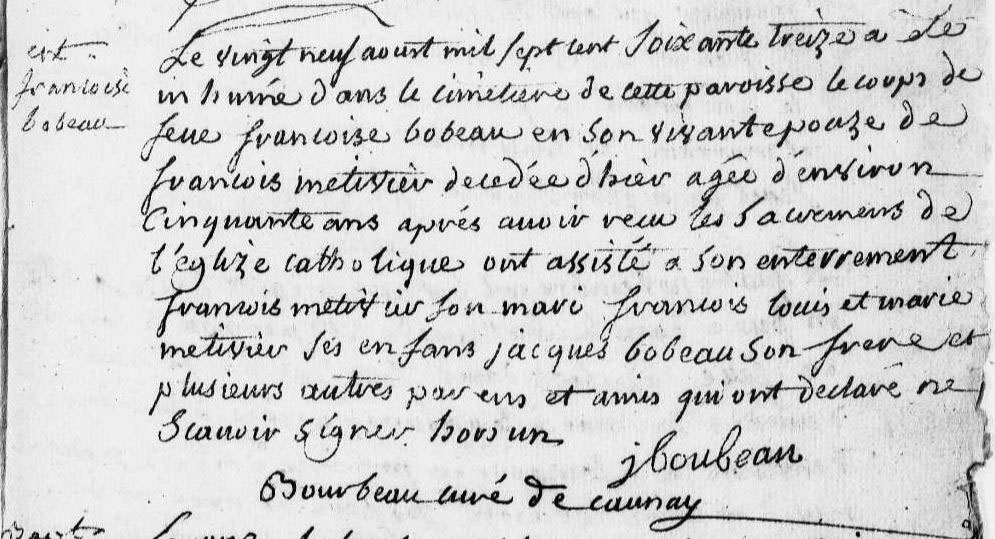 ent.
francoise
bobeau
Le vingt neuf aoust mil sept cent soixante treize a ete
inhumé dans le cimetiere de cette paroisse le coups de
feue francoize bobeau en son vivant epouze de
francois metivier decedée d'hier agée d'environ
Cinquante ans aprés avoir recu les sacremens de
l'églize catholique ont assisté a son enterrement
francois metivier son mari francois louis et marie
metivier ses enfans jacques bobeau son frere et
plusieurs autres parens et amis qui ont declaré ne
scavoir signer hors un
j boubeau
Bourbeau curé de caunay